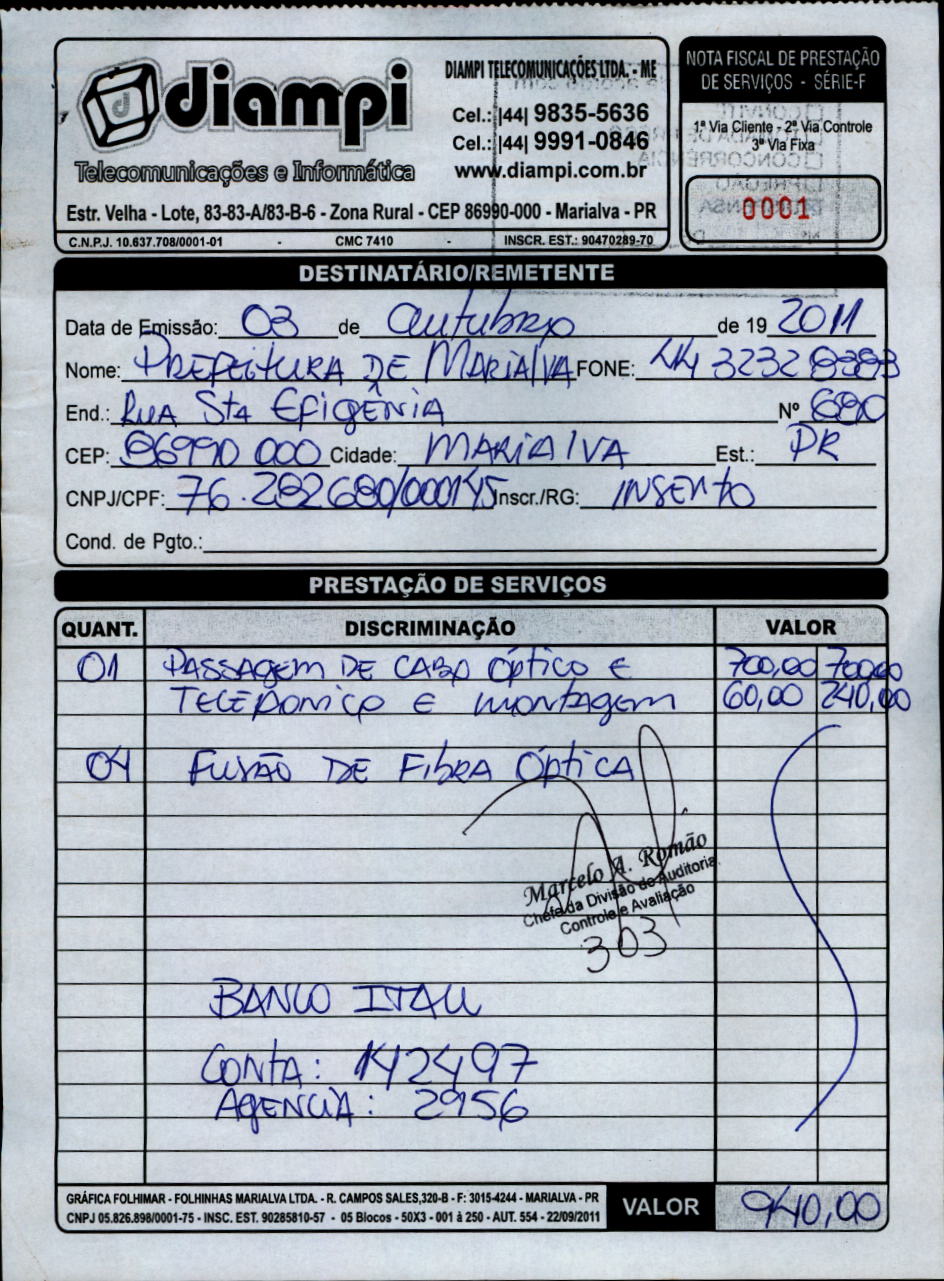 diampi
Telecomunicações e Informática
DIAMPI TELECOMUNICAÇÕES LTDA. - ME
Cel.: |44| 9835-5636
Cel.: |44| 9991-0846
www.diampi.com.br
Estr. Velha - Lote, 83-83-A/83-B-6 - Zona Rural - CEP 86990-000 - Marialva - PR
C.N.P.J. 10.637.708/0001-01 - CMC 7410 - INSCR. EST.: 90470289-70
NOTA FISCAL DE PRESTAÇÃO
DE SERVIÇOS - SÉRIE-F
1ª Via Cliente - 2ª Via Controle
3ª Via Fixa
0001
DESTINATÁRIO/REMETENTE
Data de Emissão: 03 de Outubro de 19 2011
Nome: PREFEITURA DE MARIALVA FONE: 44 3232 8383
End.: RUA Sta EFIGÊNIA Nº 680
CEP: 86990 000 Cidade: MARIALVA Est.: PR
CNPJ/CPF: 76.282680/000145 Inscr./RG: INSENTO
Cond. de Pgto.:
PRESTAÇÃO DE SERVIÇOS
QUANT. DISCRIMINAÇÃO VALOR
01 PASSAGEM DE CABO ÓPTICO E 700,00 700,00
TELEFONICO E MONTAGEM 60,00 240,00
04 FUSÃO DE FIBRA ÓPTICA
Marcelo A. Romão
Chefe da Divisão de Auditoria
Controle e Avaliação
303
BANCO ITAU
CONTA: 142497
AGENCIA: 2956
GRÁFICA FOLHIMAR - FOLHINHAS MARIALVA LTDA. - R. CAMPOS SALES,320-B - F: 3015-4244 - MARIALVA - PR
CNPJ 05.826.898/0001-75 - INSC. EST. 90285810-57 - 05 Blocos - 50X3 - 001 à 250 - AUT. 554 - 22/09/2011
VALOR 940,00